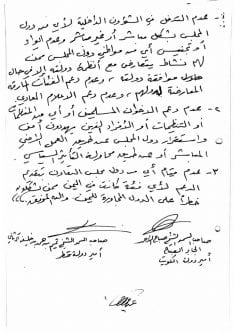 ١- عدم التدخل في الشؤون الداخلية لأي من دول
المجلس بشكل مباشر أو غير مباشر وعدم إيواء
أو تجنيس أي من مواطني دول المجلس ممن
لهم نشاط يتعارض مع أنظمة دولته إلا في حال
موافقة دولته، وعدم دعم الفئات المارقة
المعارضة لدولهم، وعدم دعم الإعلام المعادي
٢- عدم دعم الإخوان المسلمين أو أي من المنظمات
أو التنظيمات أو الأفراد الذين يهددون أمن
واستقرار دول المجلس عن طريق العمل الأمني
المباشر أو عن طريق محاولة التأثير السياسي
٣- عدم قيام أي من دول مجلس التعاون بتقديم
الدعم لأي فئة كانت في اليمن ممن يشكلون
خطراً على الدول المجاورة لليمن والله الموفق
صاحب السمو الشيخ صباح الأحمد
الجابر الصباح
أمير دولة الكويت
صاحب السمو الشيخ تميم بن حمد بن خليفة آل ثاني
أمير دولة قطر